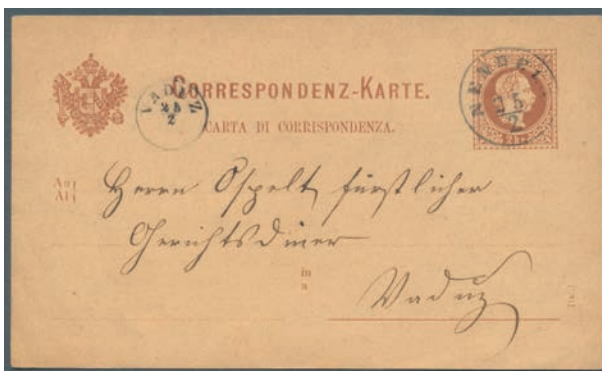 CORRESPONDENZ-KARTE.
CARTA DI CORRISPONDENZA.
VADUZ
2
NENDEL
15
2
2 kr.
An
A
Herrn Ospelt, fürstlicher
Gerichtsdiner
in
a
Vaduz